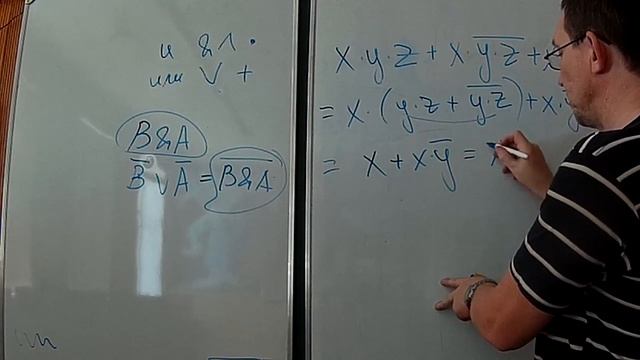 и & Λ ·
или V +
B&A
B̅ V A̅ = \overline{B&A}
x · y · z + x · \overline{y · z} + x
= x · (y · z + \overline{y · z}) + x · y
= x + x · y̅ = x